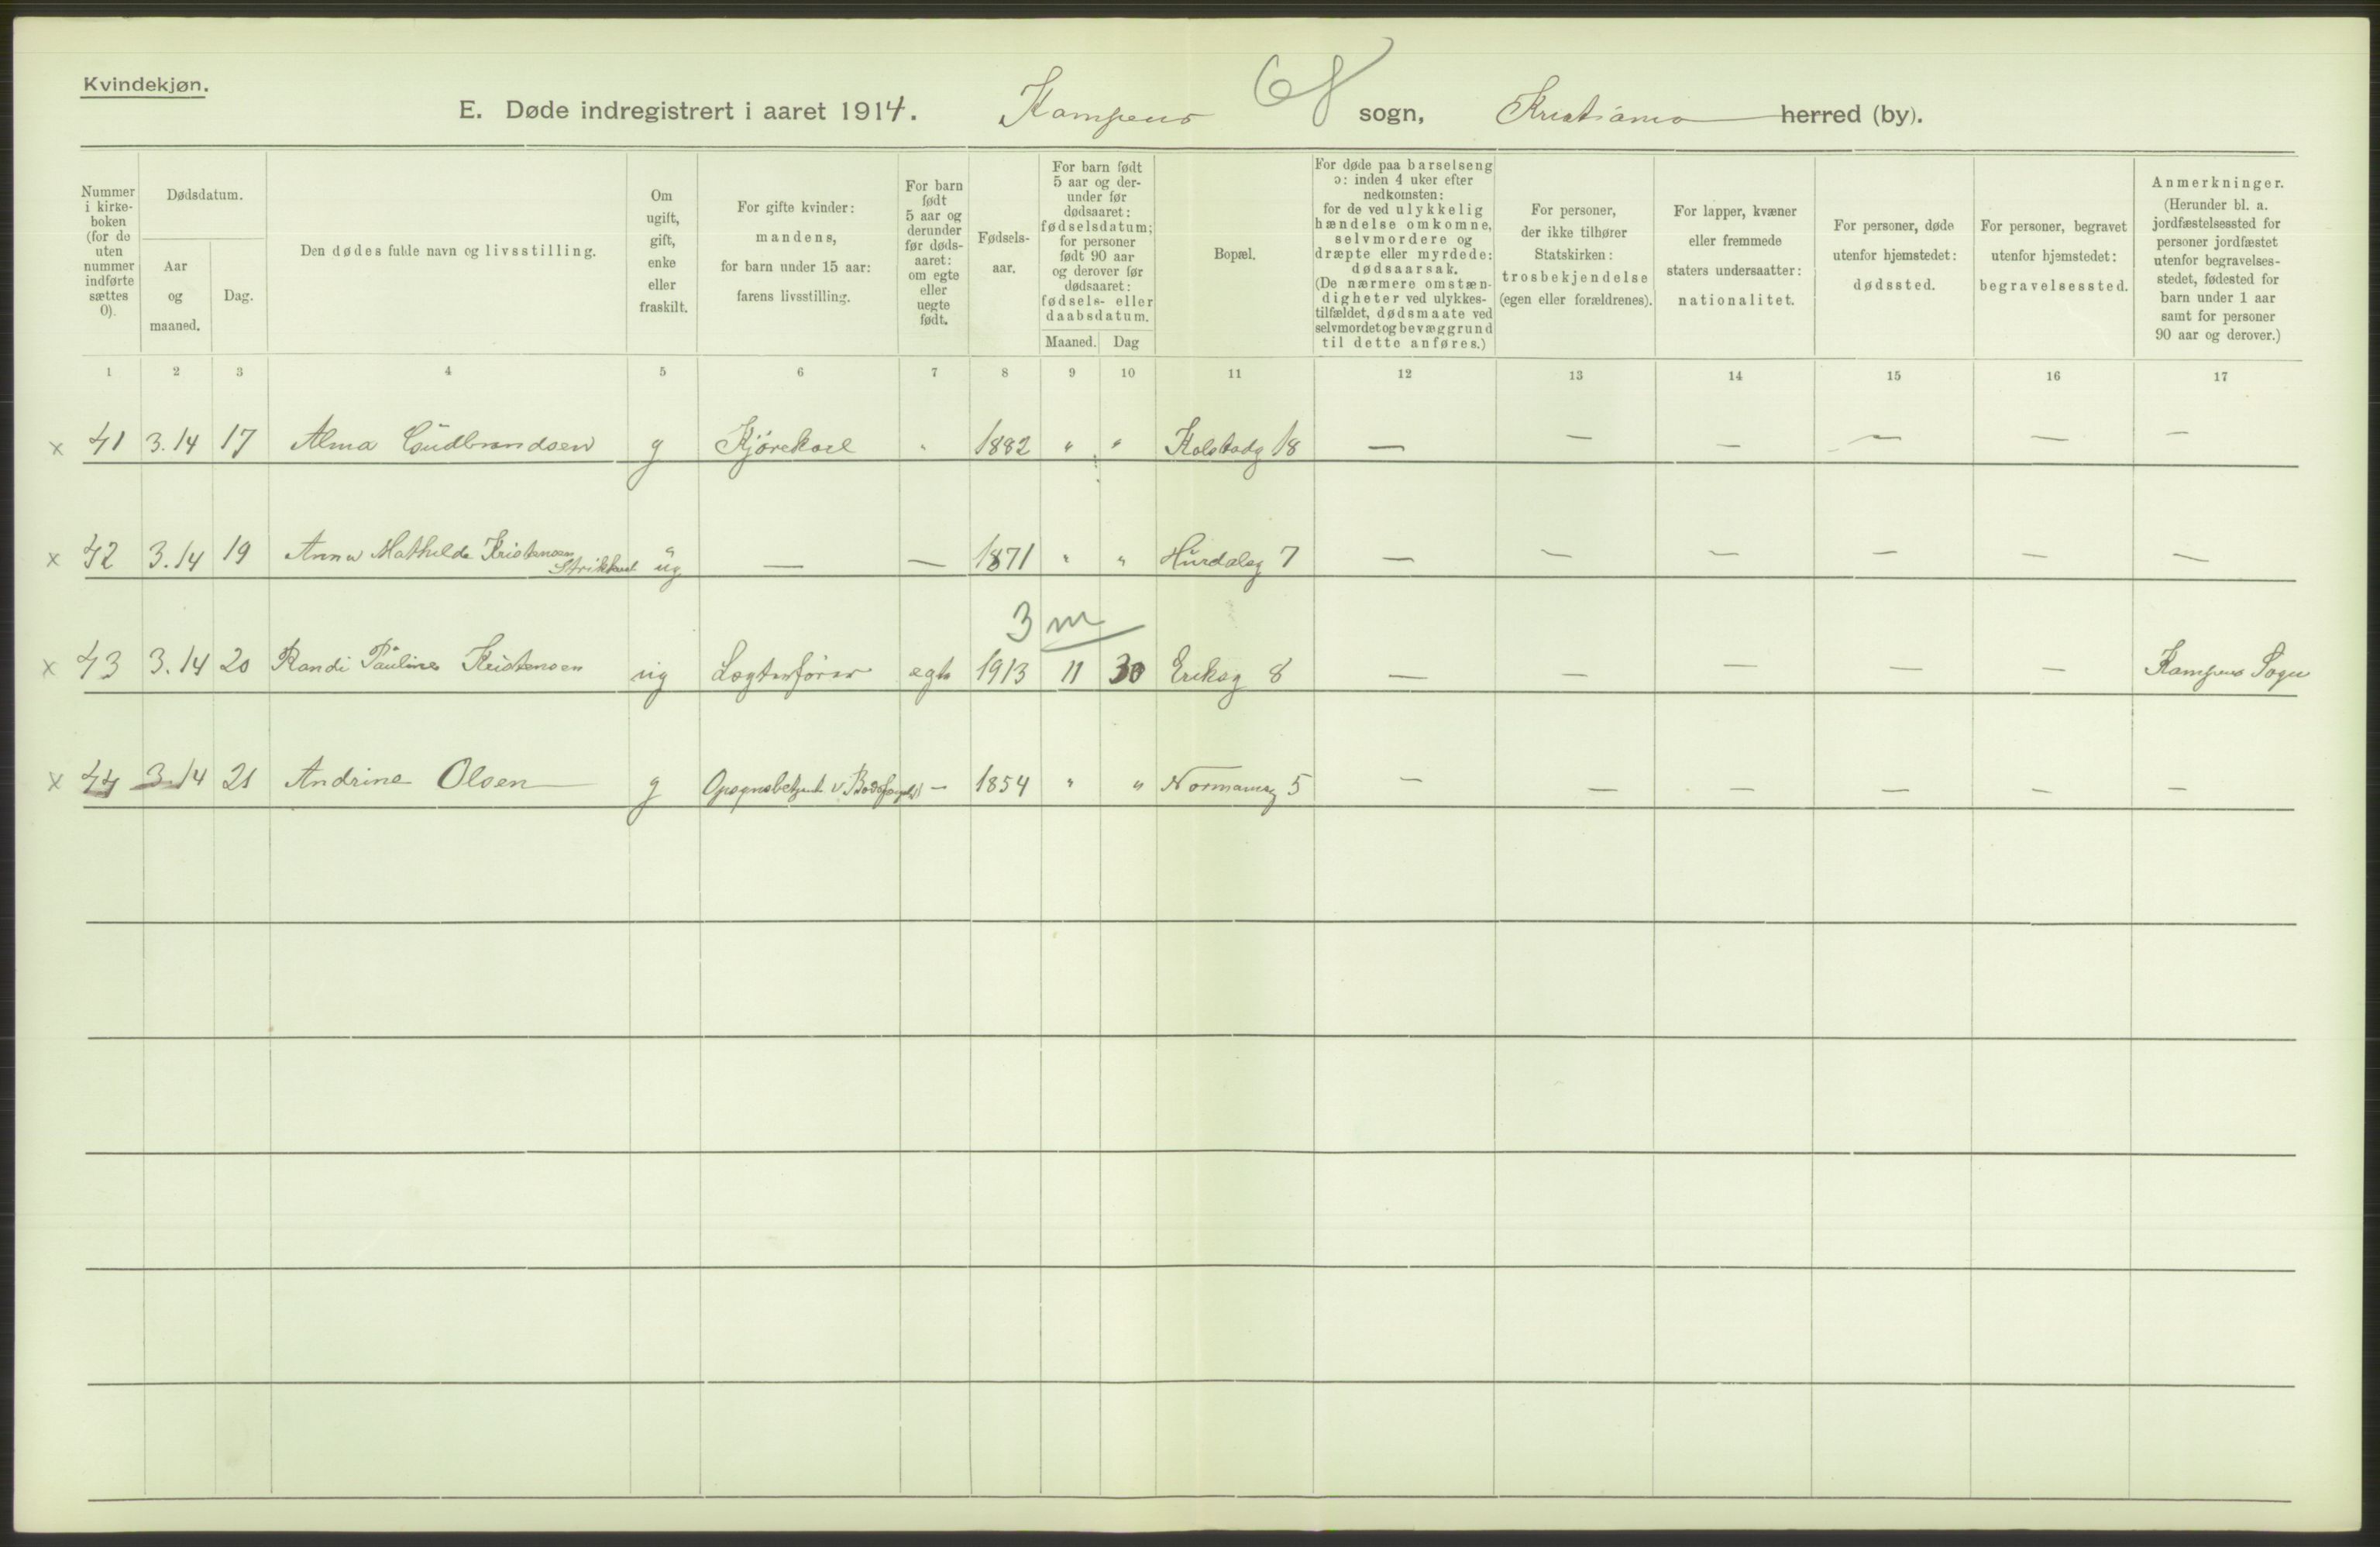 Kvindekjøn.
E. Døde indregistrert i aaret 1914. Kampens sogn, Kristiania herred (by).
Nummer i kirkeboken (for de uten nummer indførte sættes 0).
Dødsdatum.
Aar og maaned.
Dag.
Den dødes fulde navn og livsstilling.
Om ugift, gift, enke eller fraskilt.
For gifte kvinder: mandens, for barn under 15 aar: farens livsstilling.
For barn født 5 aar og derunder før dødsaaret: om egte eller uegte født.
Fødselsaar.
For barn født 5 aar og derunder før dødsaaret: fødselsdatum; for personer født 90 aar og derover før dødsaaret: fødsels- eller daabsdatum.
Maaned. Dag
Bopæl.
For døde paa barselseng ɔ: inden 4 uker efter nedkomsten: for de ved ulykkelig hændelse omkomne, selvmordere og dræpte eller myrdede: dødsaarsak. (De nærmere omstændigheter ved ulykkestilfældet, dødsmaate ved selvmordet og bevæggrund til dette anføres.)
For personer, der ikke tilhører Statskirken: trosbekjendelse (egen eller forældrenes).
For lapper, kvæner eller fremmede staters undersaatter: nationalitet.
For personer, døde utenfor hjemstedet: dødssted.
For personer, begravet utenfor hjemstedet: begravelsessted.
Anmerkninger. (Herunder bl. a. jordfæstelsessted for personer jordfæstet utenfor begravelsesstedet, fødested for barn under 1 aar samt for personer 90 aar og derover.)
1 2 3 4 5 6 7 8 9 10 11 12 13 14 15 16 17
x 41 3.14 17 Alma Gudbrandsen g Kjørekarl " 1882 " " Kolstadg 18 — — — — — —
x 42 3.14 19 Anna Mathilde Kristensen ug — — 1871 " " Hurdalsg 7 — — — — — —
3 m
x 43 3.14 20 Randi Pauline Kristensen ug Logterfører egte 1913 11 30 Eriksg 8 — — — — — Kampens Sogn
x 44 3.14 21 Andrine Olsen g Opsynsbetjent v Bodsfængslet — 1854 " " Normannsg 5 — — — — — —